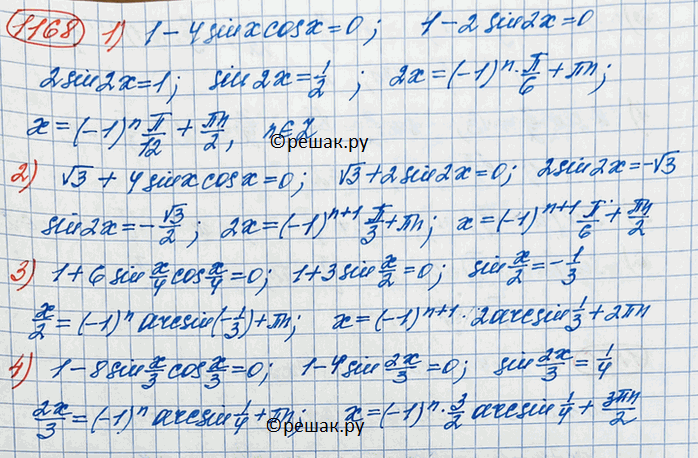 1168 1) 1 - 4 sin x cos x = 0; 1 - 2 sin 2x = 0
2 sin 2x = 1; sin 2x = 1/2; 2x = (-1)^n · π/6 + πn;
x = (-1)^n π/12 + πn/2, n∈Z
©решак.ру
2) √3 + 4 sin x cos x = 0; √3 + 2 sin 2x = 0; 2 sin 2x = -√3
sin 2x = -√3/2; 2x = (-1)^{n+1} π/3 + πn; x = (-1)^{n+1} π/6 + πn/2
3) 1 + 6 sin x/4 cos x/4 = 0; 1 + 3 sin x/2 = 0; sin x/2 = -1/3
x/2 = (-1)^n arcsin(-1/3) + πn; x = (-1)^{n+1} · 2 arcsin 1/3 + 2πn
4) 1 - 8 sin x/3 cos x/3 = 0; 1 - 4 sin 2x/3 = 0; sin 2x/3 = 1/4
2x/3 = (-1)^n arcsin 1/4 + πn; x = (-1)^n · 3/2 arcsin 1/4 + 3πn/2
©решак.ру